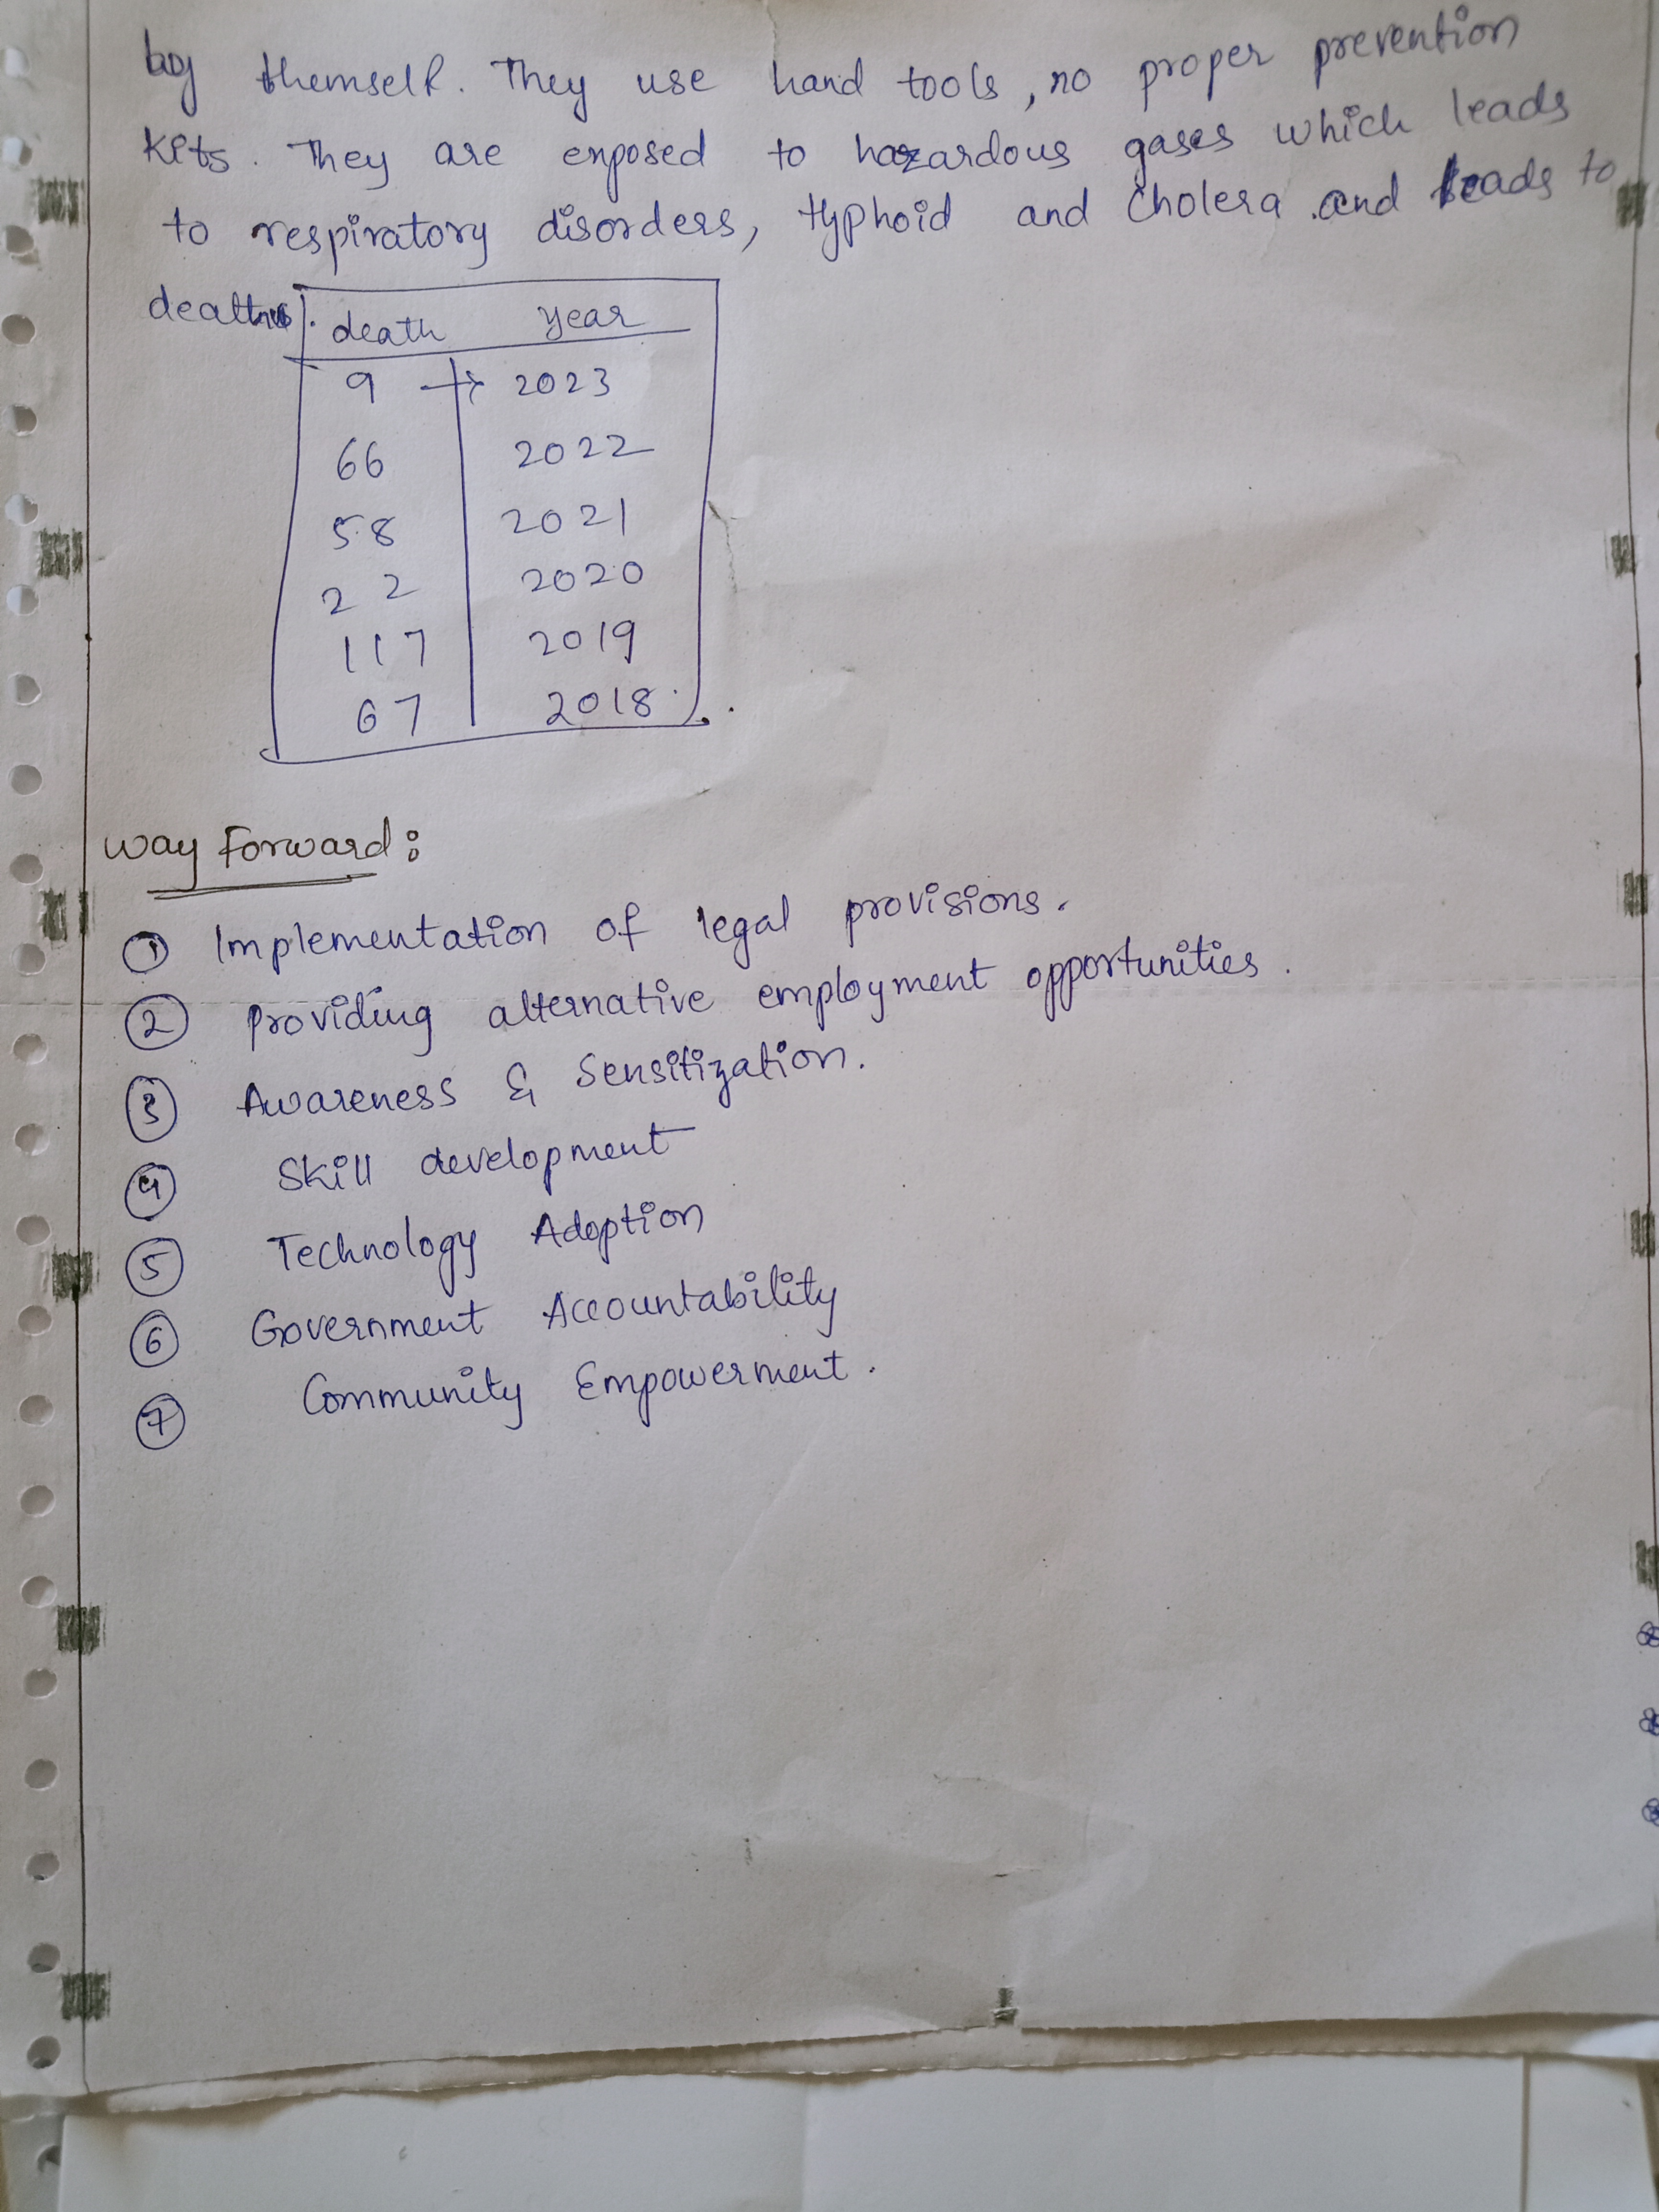 by themself. They use hand tools, no proper prevention
kits. They are exposed to hazardous gases which leads
to respiratory disorders, typhoid and cholera and leads to
deaths.
death year
9 → 2023
66 2022
58 2021
22 2020
117 2019
67 2018.
way Forward:
① Implementation of legal provisions.
② Providing alternative employment opportunities.
③ Awareness & Sensitization.
④ Skill development
⑤ Technology Adoption
⑥ Government Accountability
⑦ Community Empowerment.